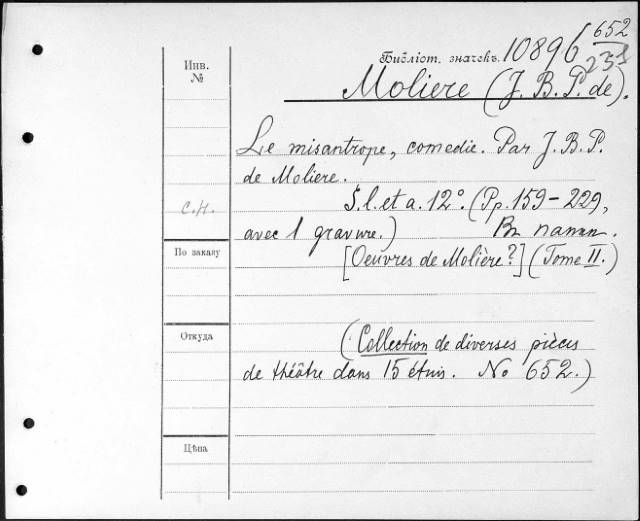 Библіот. значекъ. 10896 652
Инв.
№
Moliere (J. B. P. de).
Le misantrope, comedie. Par J. B. P.
de Moliere.
С.Н.
S. l. et a. 12°. (Pp. 159-229,
avec 1 gravure.) Въ папкѣ.
По заказу
[Oeuvres de Molière?] (Tome II.)
Откуда
(Collection de diverses pièces
de théâtre dans 15 étuis. No 652.)
Цѣна